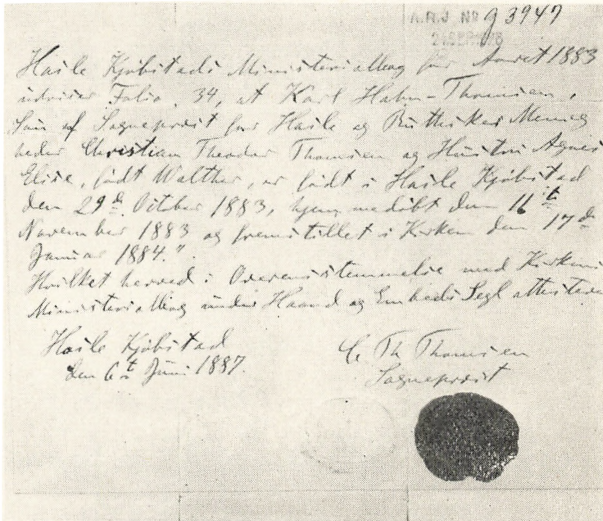 A.R.J. Nº 93947
21 SEP. 1928
Hasle Kjøbstads Ministerialbog for Aaret 1883
udviser Folio 34, at Karl Hahn-Thomsen,
Søn af Sognepræst for Hasle og Ruthsker Menig
heder Christian Theodor Thomsen og Hustru Agnes
Elise, født Walther, er født i Hasle Kjøbstad
den 29de October 1883, hjemmedøbt den 11te
November 1883 og fremstillet i Kirken den 17de
Januar 1884."
Hvilket herved i Overensstemmelse med Kirkens
Ministerialbog under Haand og Embeds Segl attesteres
Hasle Kjøbstad
den 6te Juni 1887.
C. Th. Thomsen
Sognepræst